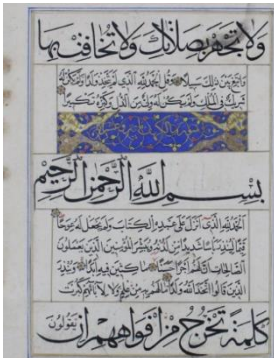 ولا تجهر بصلاتك ولا تخافت بها
وابتغ بين ذلك سبيلا وقل الحمد لله الذي لم يتخذ ولدا ولم يكن له
شريك في الملك ولم يكن له ولي من الذل وكبره تكبيرا
بسم الله الرحمن الرحيم
الحمد لله الذي انزل على عبده الكتاب ولم يجعل له عوجا
قيما لينذر باسا شديدا من لدنه ويبشر المؤمنين الذين يعملون
الصالحات ان لهم اجرا حسنا ماكثين فيه ابدا وينذر
الذين قالوا اتخذ الله ولدا ما لهم به من علم ولا لابائهم كبرت
كلمة تخرج من افواههم ان يقولون